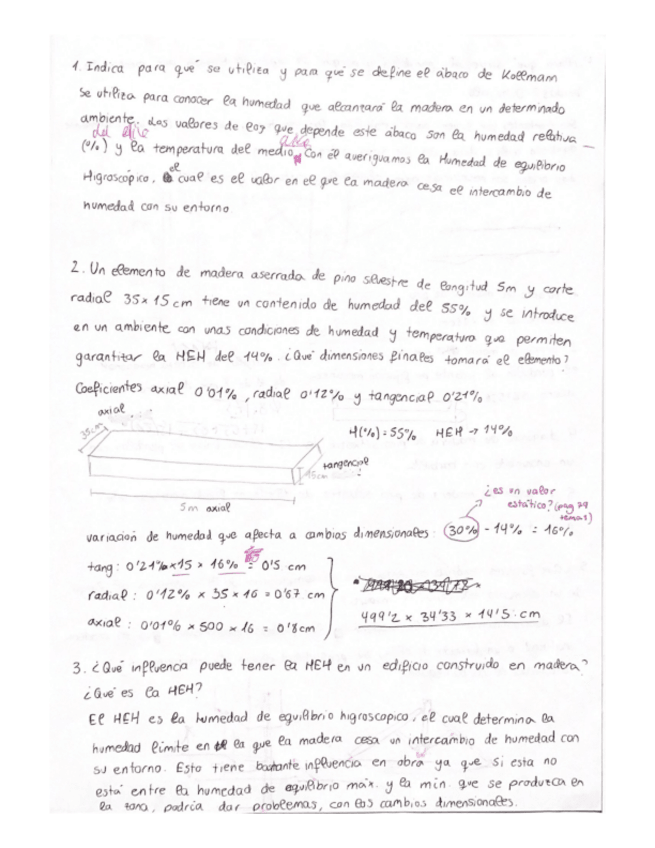 1. Indica para qué se utiliza y para qué se define el ábaco de Kollmann
Se utiliza para conocer la humedad que alcantará la madera en un determinado
ambiente. Los valores de los que depende este ábaco son la humedad relativa
del aire
(%) y la temperatura del medio. Con él averiguamos la Humedad de equilibrio
Higroscópico, el cual es el valor en el que la madera cesa el intercambio de
humedad con su entorno
2. Un elemento de madera aserrada de pino silvestre de longitud 5m y corte
radial 35x15cm tiene un contenido de humedad del 55% y se introduce
en un ambiente con unas condiciones de humedad y temperatura que permiten
garantitar la HEH del 14%. ¿Qué dimensiones finales tomará el elemento?
Coeficientes axial 0'01%, radial 0'12% y tangencial 0'21%
axial
35cm
H(%)=55% HEH → 14%
tangencial
15cm
5m axial
¿es un valor
estático? (pag 79
tema 1)
variación de humedad que afecta a cambios dimensionales: 30% - 14% = 16%
tang: 0'21% x 15 x 16% = 0'5 cm
radial: 0'12% x 35 x 16 = 0'67 cm
axial: 0'01% x 500 x 16 = 0'8cm
499'2 x 34'33 x 14'5 cm
3. ¿Qué influencia puede tener la HEH en un edificio construido en madera?
¿Qué es la HEH?
El HEH es la humedad de equilibrio higroscopico, el cual determina la
humedad límite en la que la madera cesa un intercambio de humedad con
su entorno. Esto tiene bastante influencia en obra ya que si esta no
está entre la humedad de equilibrio máx. y la mín. que se produzca en
la zona, podría dar problemas, con los cambios dimensionales.